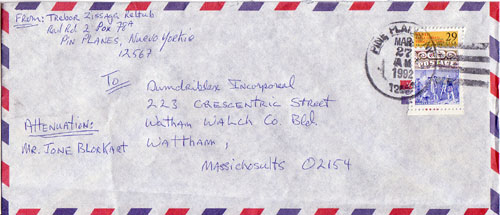 From: Trebor Zissaga Reltub
Rurl Rd. 2 Box 78A
Pin Planes, Nuevo Yorkio
12567
To
Dumdriblex Incorporeal
223 Crescentric Street
Watham Walch Co Bld.
Wattham,
Massichosults 02154
Attenuation:
Mr. Jone Blorkart
PINE PLAINS
MAR
27
AM
1992
29
POSTAGE